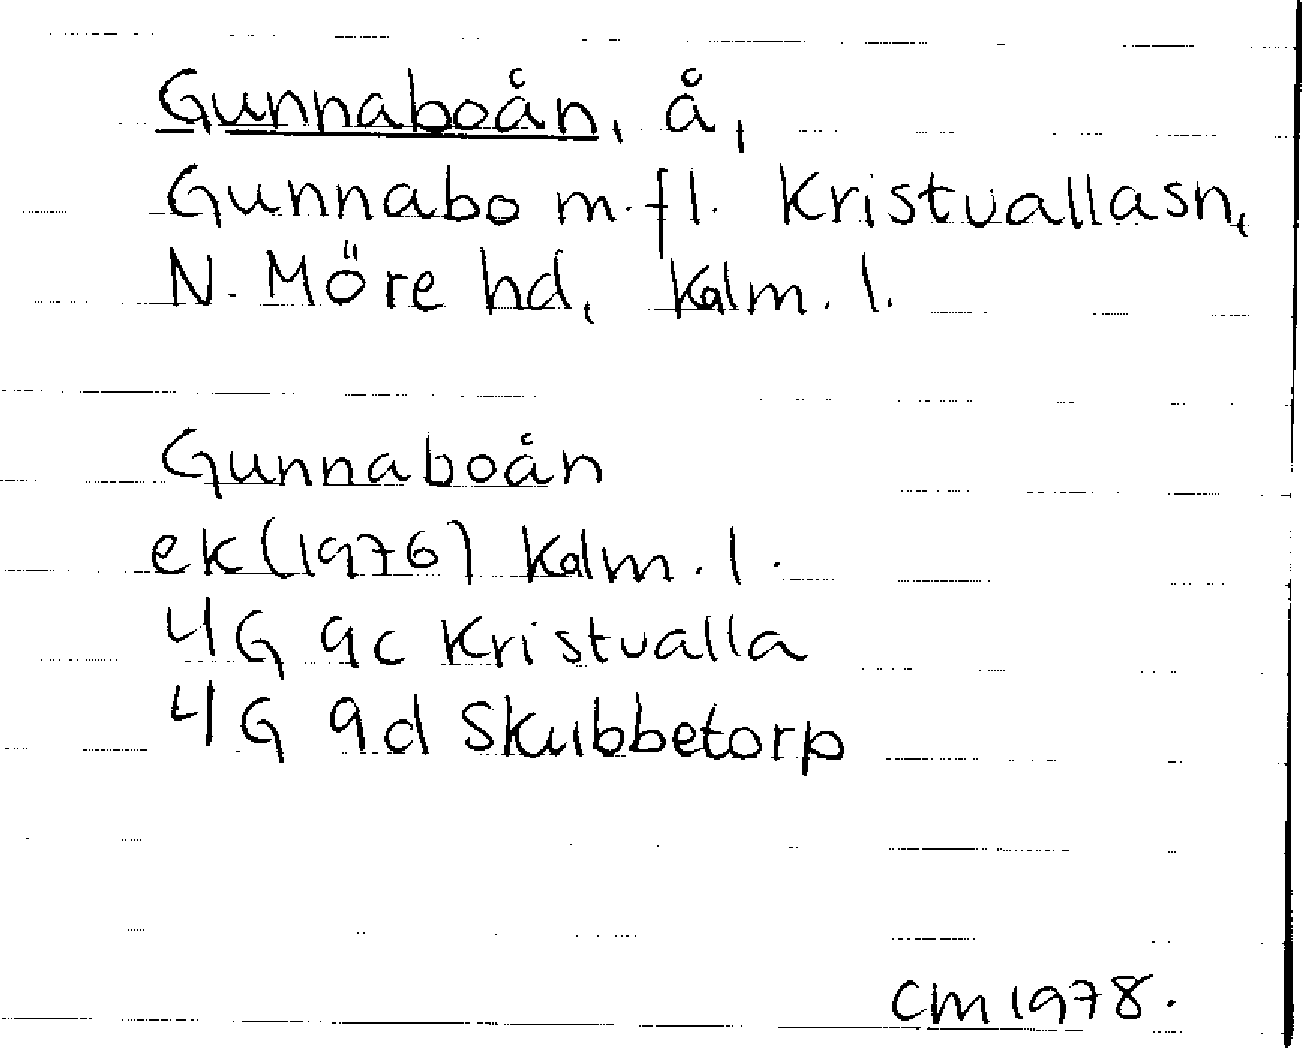 Gunnaboån, å,
Gunnabo m.fl. Kristvalla sn,
N. Möre hd, Kalm. l.
Gunnaboån
ek (1976) Kalm. l.
4G 9c Kristvalla
4G 9d Skubbetorp
CM 1978.